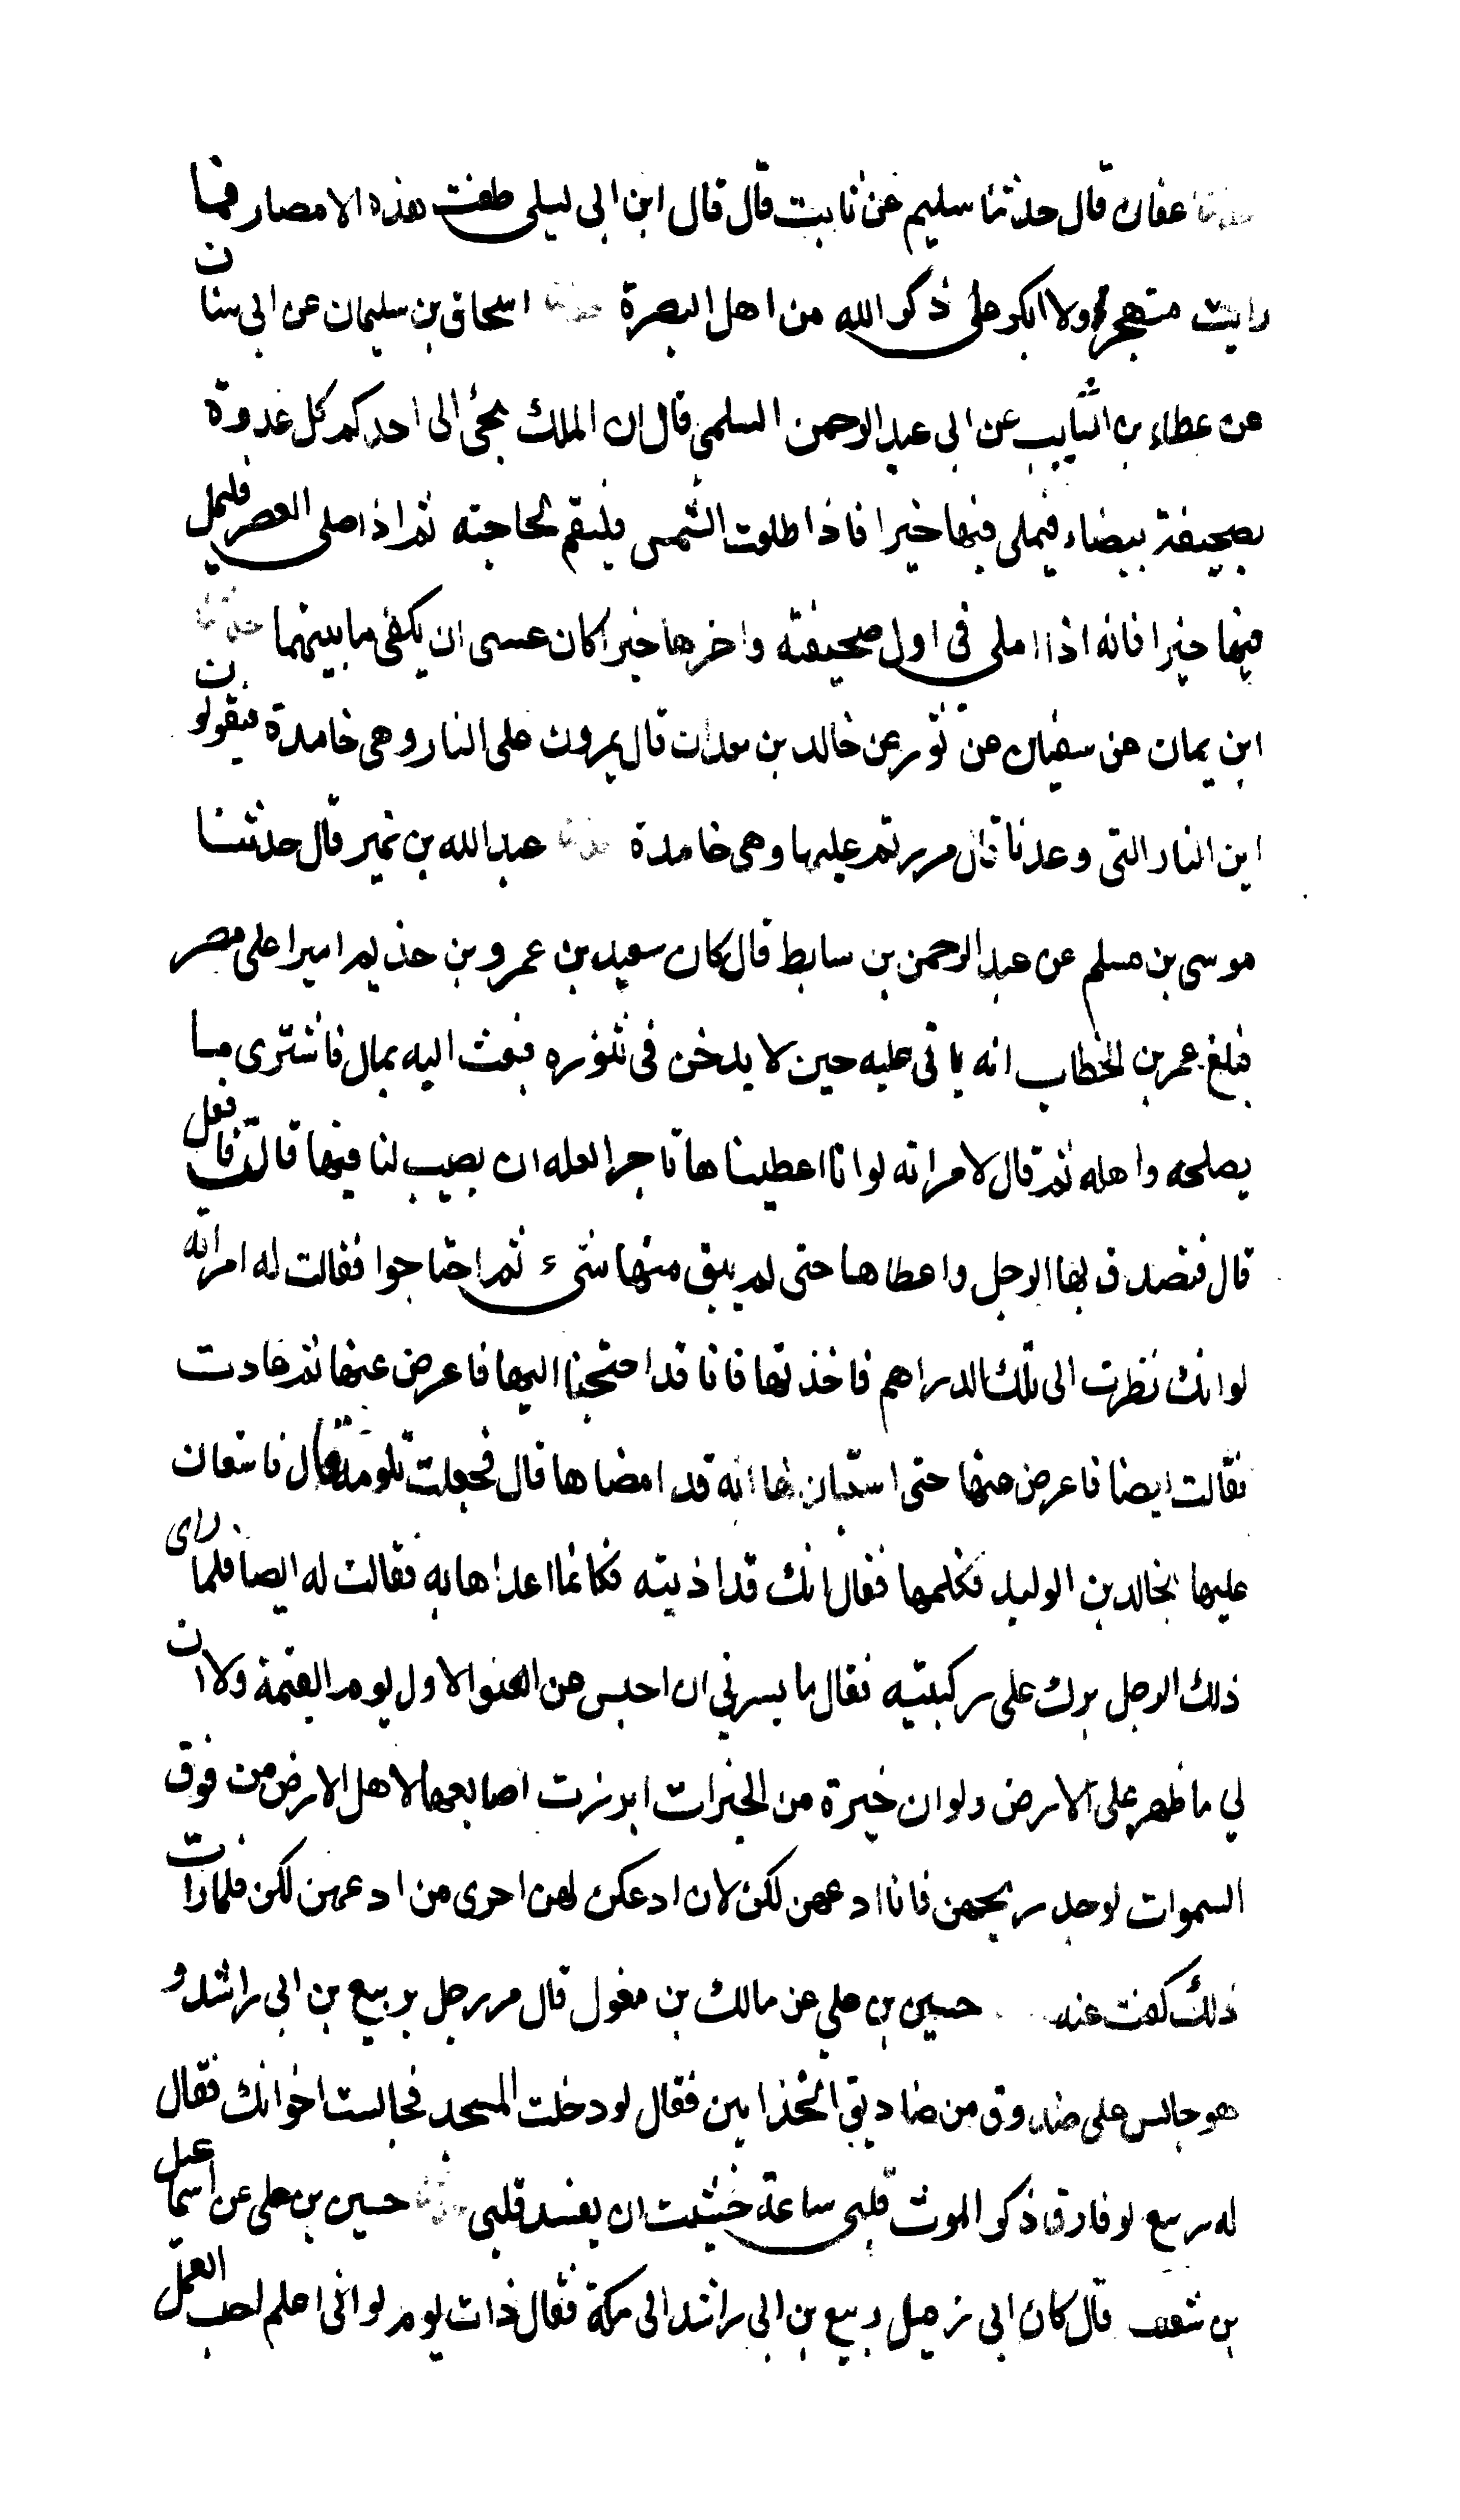 حدثنا عفان قال حدثنا سليم عن ثابت قال قال ابن ابى ليلى طفت هذه الامصار فما
رايت متهجرا ولا ابكر على ذكر الله من اهل البصرة حدثنا اسحاق بن سليمان عن ابى سنان
عن عطاء بن السايب عن ابى عبد الرحمن السلمى قال ان الملك يجئ الى احدكم كل غدوة
بصحيفة بيضاء فيملى فيها خيرا فاذا طلعت الشمس فليقم لحاجته ثم اذا صلى العصر فليمل
فيها خيرا فانه اذا املى فى اول صحيفته واخرها خيرا كان عسى ان يكفى ما بينهما حدثنا
ابن يمان عن سفيان عن ثور عن خالد بن معدان قال يمرون على النار وهى خامدة فيقولون
اين النار التى وعدنا قال مررتم عليها وهى خامدة حدثنا عبد الله بن نمير قال حدثنا
موسى بن مسلم عن عبد الرحمن بن سابط قال كان سعيد بن عمرو بن حذيم اميرا على مصر
فبلغ عمر بن الخطاب انه ياتى عليه حين لا يدخن فى تنوره فبعث اليه بمال فاشترى ما
يصلحه واهله ثم قال لامراته لو انا اعطيناها تاجرا لعله ان يصيب لنا فيها قالت فافعل
قال فتصدق بها الرجل واعطاها حتى لم يبق منها شىء ثم احتاجوا فقالت له امراته
لو انك نظرت الى تلك الدراهم فاخذتها فانا قد احتجنا اليها فاعرض عنها ثم عادت
فقالت ايضا فاعرض عنها حتى استبان لها انه قد امضاها قال فجعلت تلومه قال فاستعان
عليها بخالد بن الوليد فكلمها فقال انك قد اذيته فكانما اغراها به فقالت له ايضا فلما راى
ذلك الرجل برك على ركبتيه فقال ما يسرني ان احبس عن العنق الاول يوم القيمة ولا ان
لي ما ظهر على الارض ولو ان خيرة من الخيرات ابرزت اصابعها لاهل الارض من فوق
السموات لوجد ريحهن فانا ادعهن لكن لان ادعكن لهن احرى من ادعهن لكن فلما رات
ذلك كفت عنه حسين بن على عن مالك بن مغول قال مر رجل بربيع بن ابى راشد و
هو جالس على صندوق من صناديق الحذايين فقال لو دخلت المسجد فجالست اخوانك فقال
له ربيع لو فارق ذكر الموت قلبى ساعة خشيت ان يفسد قلبى حدثنا حسين بن على عن اسماعيل
بن شعيب قال كان ابى زميل ربيع بن ابى راشد الى مكة فقال ذات يوم لو انى اعلم احب العمل